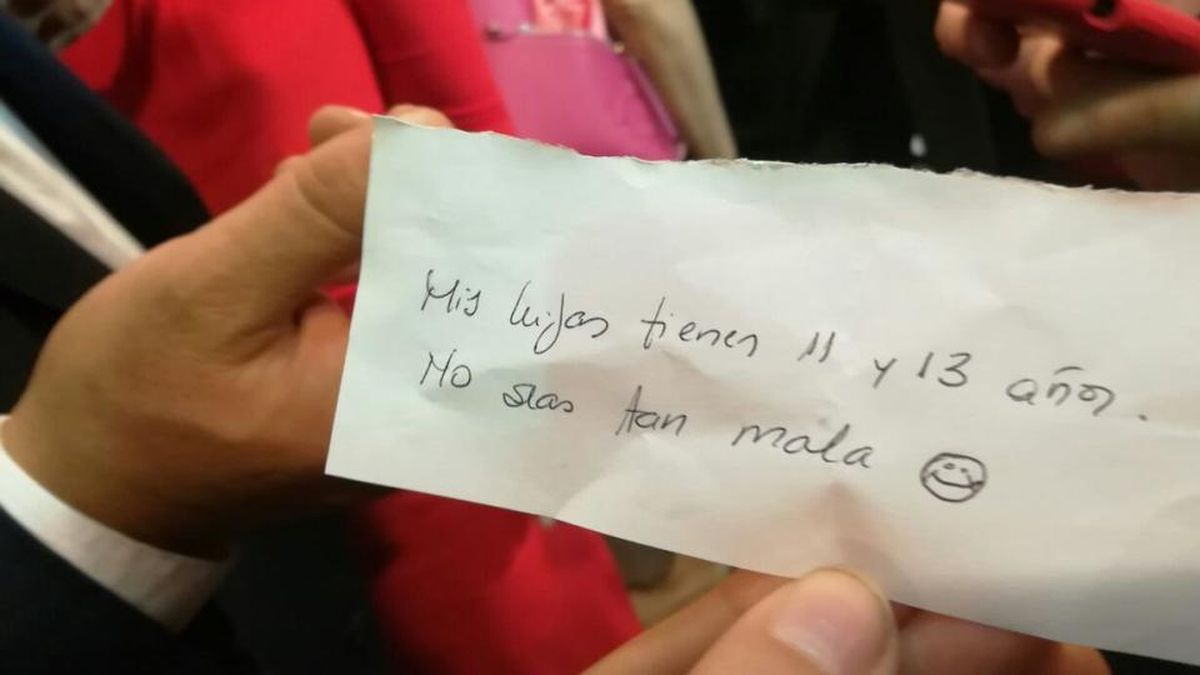 Mis hijas tienen 11 y 13 años.
No seas tan mala